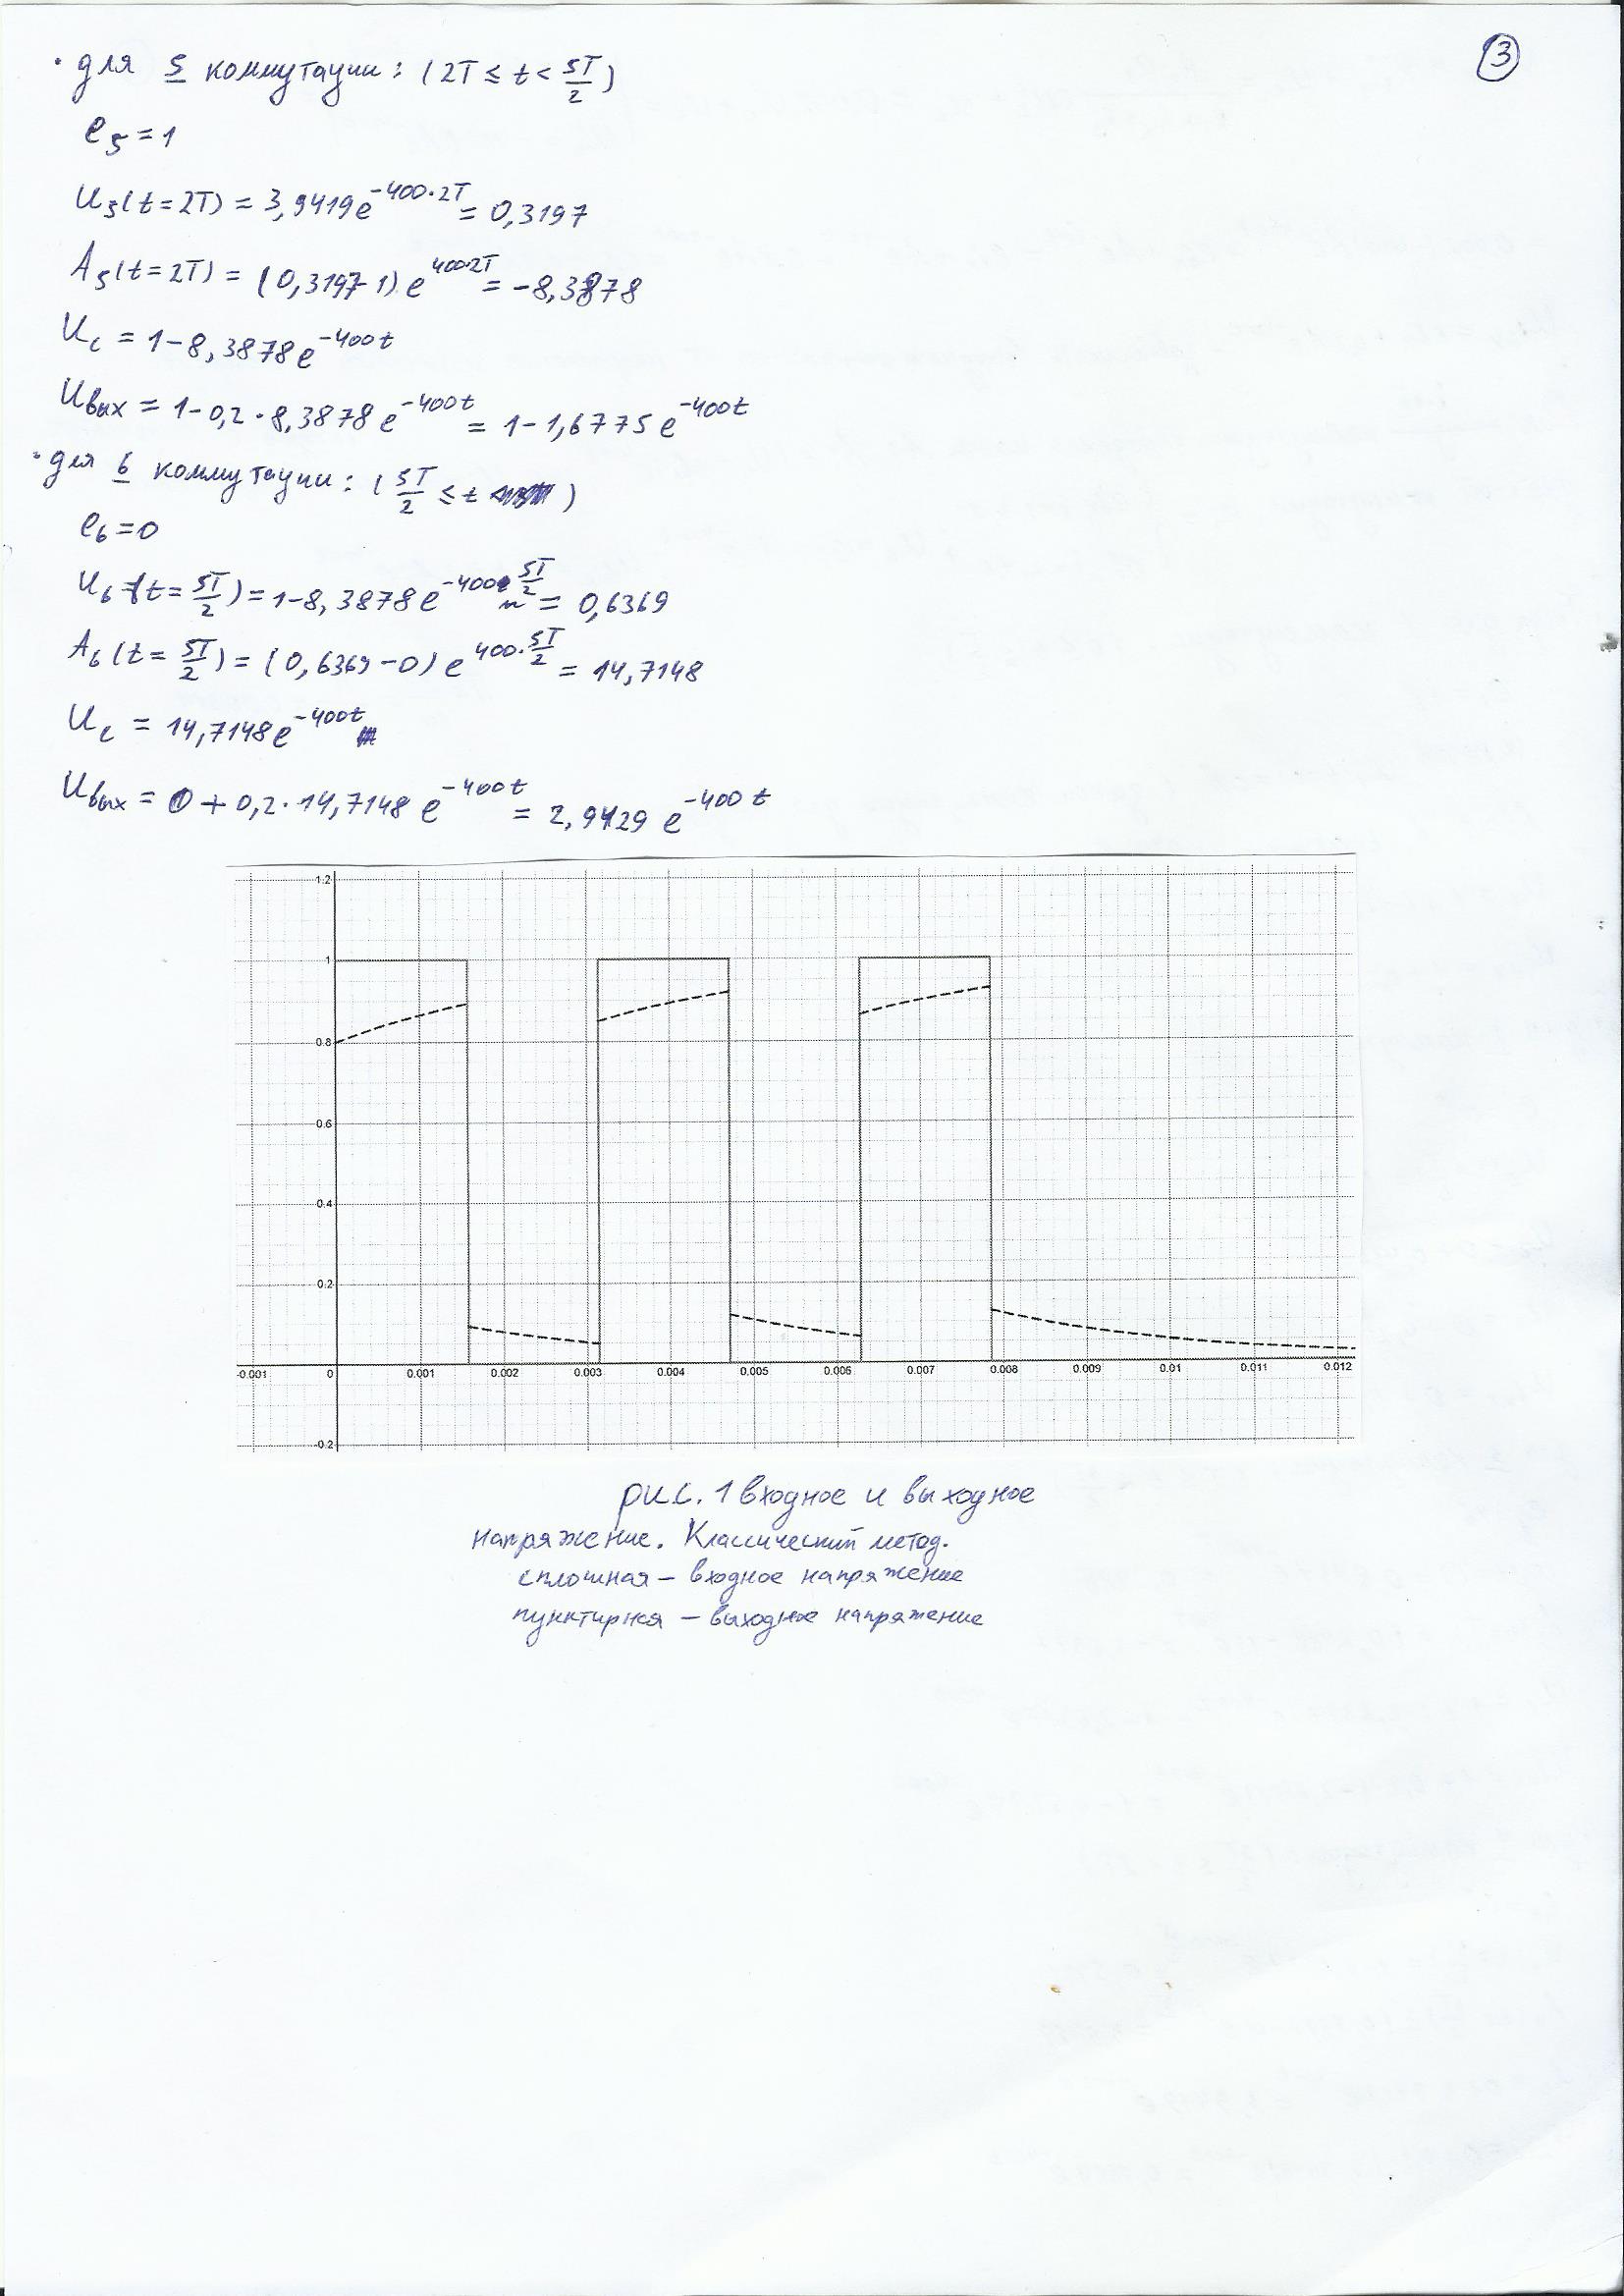 3
· для 5 коммутации: (2T ≤ t < 5T/2)
e₅ = 1
U₅(t=2T) = 3,9419e^(-400·2T) = 0,3197
A₅(t=2T) = (0,3197-1)e^(400·2T) = -8,3878
U_c = 1-8,3878e^(-400t)
U_вых = 1-0,2·8,3878e^(-400t) = 1-1,6775e^(-400t)
· для 6 коммутации: (5T/2 ≤ t )
e₆ = 0
U₆(t=5T/2) = 1-8,3878e^(-400·5T/2) = 0,6369
A₆(t=5T/2) = (0,6369-0)e^(400·5T/2) = 14,7148
U_c = 14,7148e^(-400t)
U_вых = 0+0,2·14,7148e^(-400t) = 2,9429e^(-400t)
1.2
1
0.8
0.6
0.4
0.2
-0.001 0 0.001 0.002 0.003 0.004 0.005 0.006 0.007 0.008 0.009 0.01 0.011 0.012
-0.2
рис. 1 входное и выходное
напряжение. Классический метод.
сплошная – входное напряжение
пунктирная – выходное напряжение